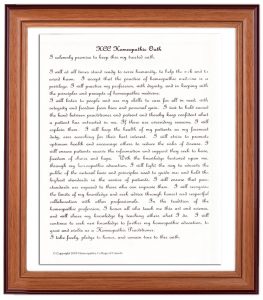 HCC Homeopathic Oath
I solemnly promise to keep this my trusted oath.
I will at all times stand ready to serve humanity, to help the sick and to
mend them. I accept that the practice of homeopathic medicine is a
privilege. I will practice my profession, with dignity, and in keeping with
the principles and precepts of homeopathic medicine.
I will listen to people and use my skills to care for all in need, with
integrity and freedom from bias and personal gain. I vow to hold sacred
the bond between practitioner and patient and thereby keep confident what
a patient has entrusted in me. If there are overriding reasons, I will
explain them. I will keep the health of my patients as my foremost
duty, ever searching for their best interest. I will strive to promote
optimum health and encourage others to reduce the risks of disease. I
will ensure patients receive the information and support they seek to have,
freedom of choice and hope. With the knowledge bestowed upon me,
through my homeopathic education, I will light the way to elevate the
public of the natural laws and principles used to guide me, and hold the
highest standards in the service of patients. I will ensure that your
standards are required to those who can improve them. I will recognize
the limits of my knowledge and seek advice through honest and respectful
collaboration with other professionals. In the tradition of the
homeopathic profession, I honor all who teach me this art and science,
and will share my knowledge by teaching others what I do. I will
continue to seek new knowledge to further my homeopathic education, to
grow and evolve as a Homeopathic Practitioner.
I take freely, pledge to honor, and remain true to this oath.
© Copyright 2009 Homeopathic College of Canada